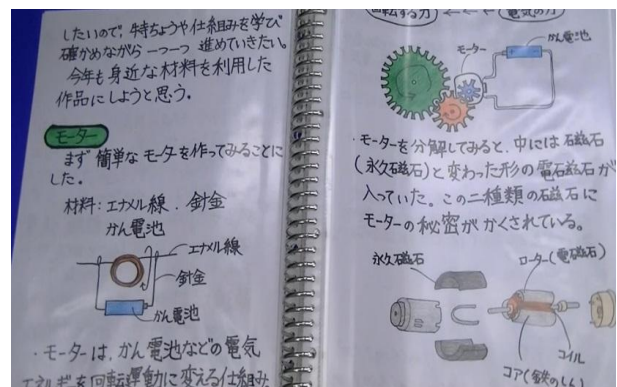 したいので、特ちょうや仕組みを学び
確かめながら一つ一つ進めていきたい。
今年も身近な材料を利用した
作品にしようと思う。
モーター
まず簡単なモータを作ってみることに
した。
材料:エナメル線.針金
かん電池
エナメル線
針金
かん電池
・モーターは、かん電池などの電気
エネルギを回転運動に変える仕組み
回転する力 ← ← ← 電気の力
モーター
かん電池
・モーターを分解してみると、中には磁石
(永久磁石)と変わった形の電磁石が
入っていた。この二種類の磁石に
モーターの秘密がかくされている。
永久磁石
ローター(電磁石)
コイル
コア(鉄のしん)